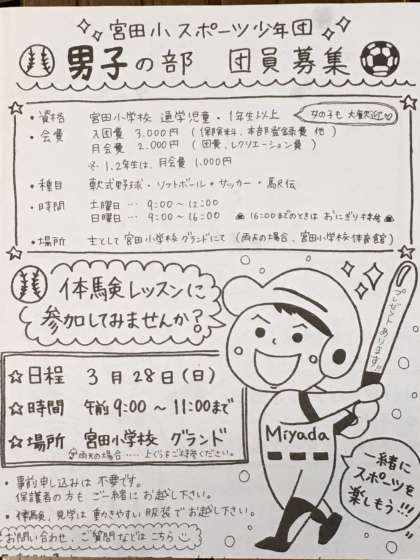 宮田小スポーツ少年団
男子の部 団員募集
・資格 宮田小学校 通学児童・1年生以上 女の子も大歓迎♡
・会費 入団費 3,000円 (保険料、本部登録費 他)
月会費 2,000円 (団費、レクリエーション費)
※1.2年生は、月会費 1,000円
・種目 軟式野球・ソフトボール・サッカー・駅伝
・時間 土曜日… 9:00~12:00
日曜日… 9:00~16:00 16:00までのときは おにぎり持参
・場所 主として 宮田小学校グランドにて (雨天の場合、宮田小学校体育館)
体験レッスンに
参加してみませんか?
プレゼントあります!!
☆日程 3月28日(日)
☆時間 午前9:00~11:00まで
☆場所 宮田小学校 グランド
雨天の場合
Miyada
一緒に
スポーツを
楽しもう!!!
・事前申し込みは 不要です。
保護者の方も ご一緒に お越し下さい。
・体験、見学は 動きやすい 服装で お越し下さい。
お問い合わせ、ご質問などは こちら